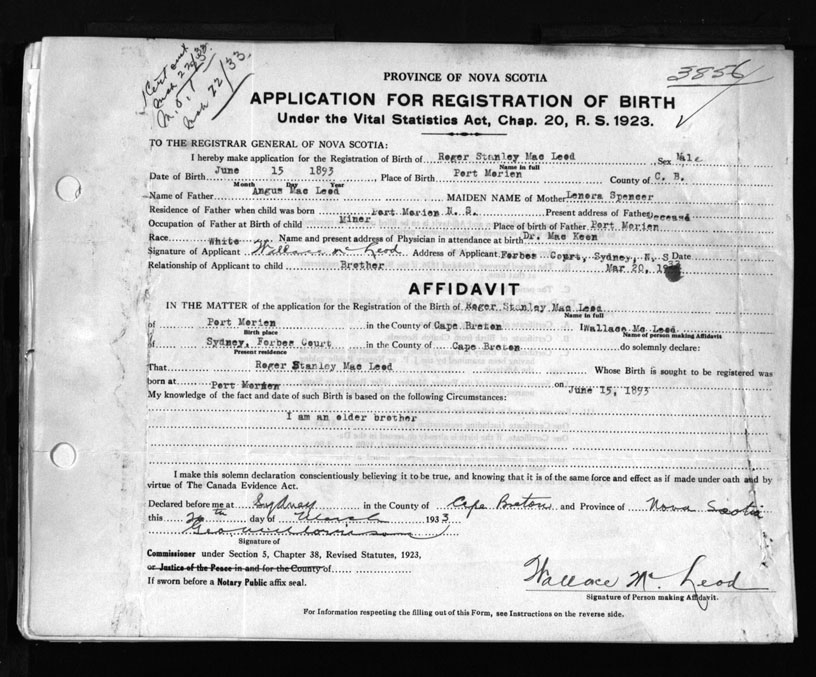 Cert out
Mch 22/33
M.S.I
Mch 22/33
3856
PROVINCE OF NOVA SCOTIA
APPLICATION FOR REGISTRATION OF BIRTH
Under the Vital Statistics Act, Chap. 20, R. S. 1923.
TO THE REGISTRAR GENERAL OF NOVA SCOTIA:
I hereby make application for the Registration of Birth of Roger Stanley Mac Leod, Sex Male
Name in full
Date of Birth June 15 1893, Place of Birth Port Morien County of C. B.
Month Day Year
Name of Father Angus Mac Leod MAIDEN NAME of Mother Lenora Spencer
Residence of Father when child was born Port Morien N. S. Present address of Father Deceased
Occupation of Father at Birth of child Miner Place of birth of Father Port Morien
Race White Name and present address of Physician in attendance at birth Dr. Mac Keen
Signature of Applicant Wallace Mc Leod Address of Applicant Forbes Court, Sydney, N. S Date
Relationship of Applicant to child Brother Mar 20, 1933
AFFIDAVIT
IN THE MATTER of the application for the Registration of the Birth of Roger Stanley Mac Leod
Name in full
of Port Morien in the County of Cape Breton I Wallace Mc Leod
Birth place Name of person making Affidavit
of Sydney, Forbes Court in the County of Cape Breton do solemnly declare:
Present residence
That Roger Stanley Mac Leod Whose Birth is sought to be registered was
born at Port Morien on June 15, 1893
My knowledge of the fact and date of such Birth is based on the following Circumstances:
I am an elder brother
I make this solemn declaration conscientiously believing it to be true, and knowing that it is of the same force and effect as if made under oath and by
virtue of The Canada Evidence Act.
Declared before me at Sydney in the County of Cape Breton and Province of Nova Scotia
this 20th day of March 1933
Signature of
Commissioner under Section 5, Chapter 38, Revised Statutes, 1923,
or Justice of the Peace in and for the County of
If sworn before a Notary Public affix seal.
Wallace Mc Leod
Signature of Person making Affidavit.
For Information respecting the filling out of this Form, see Instructions on the reverse side.